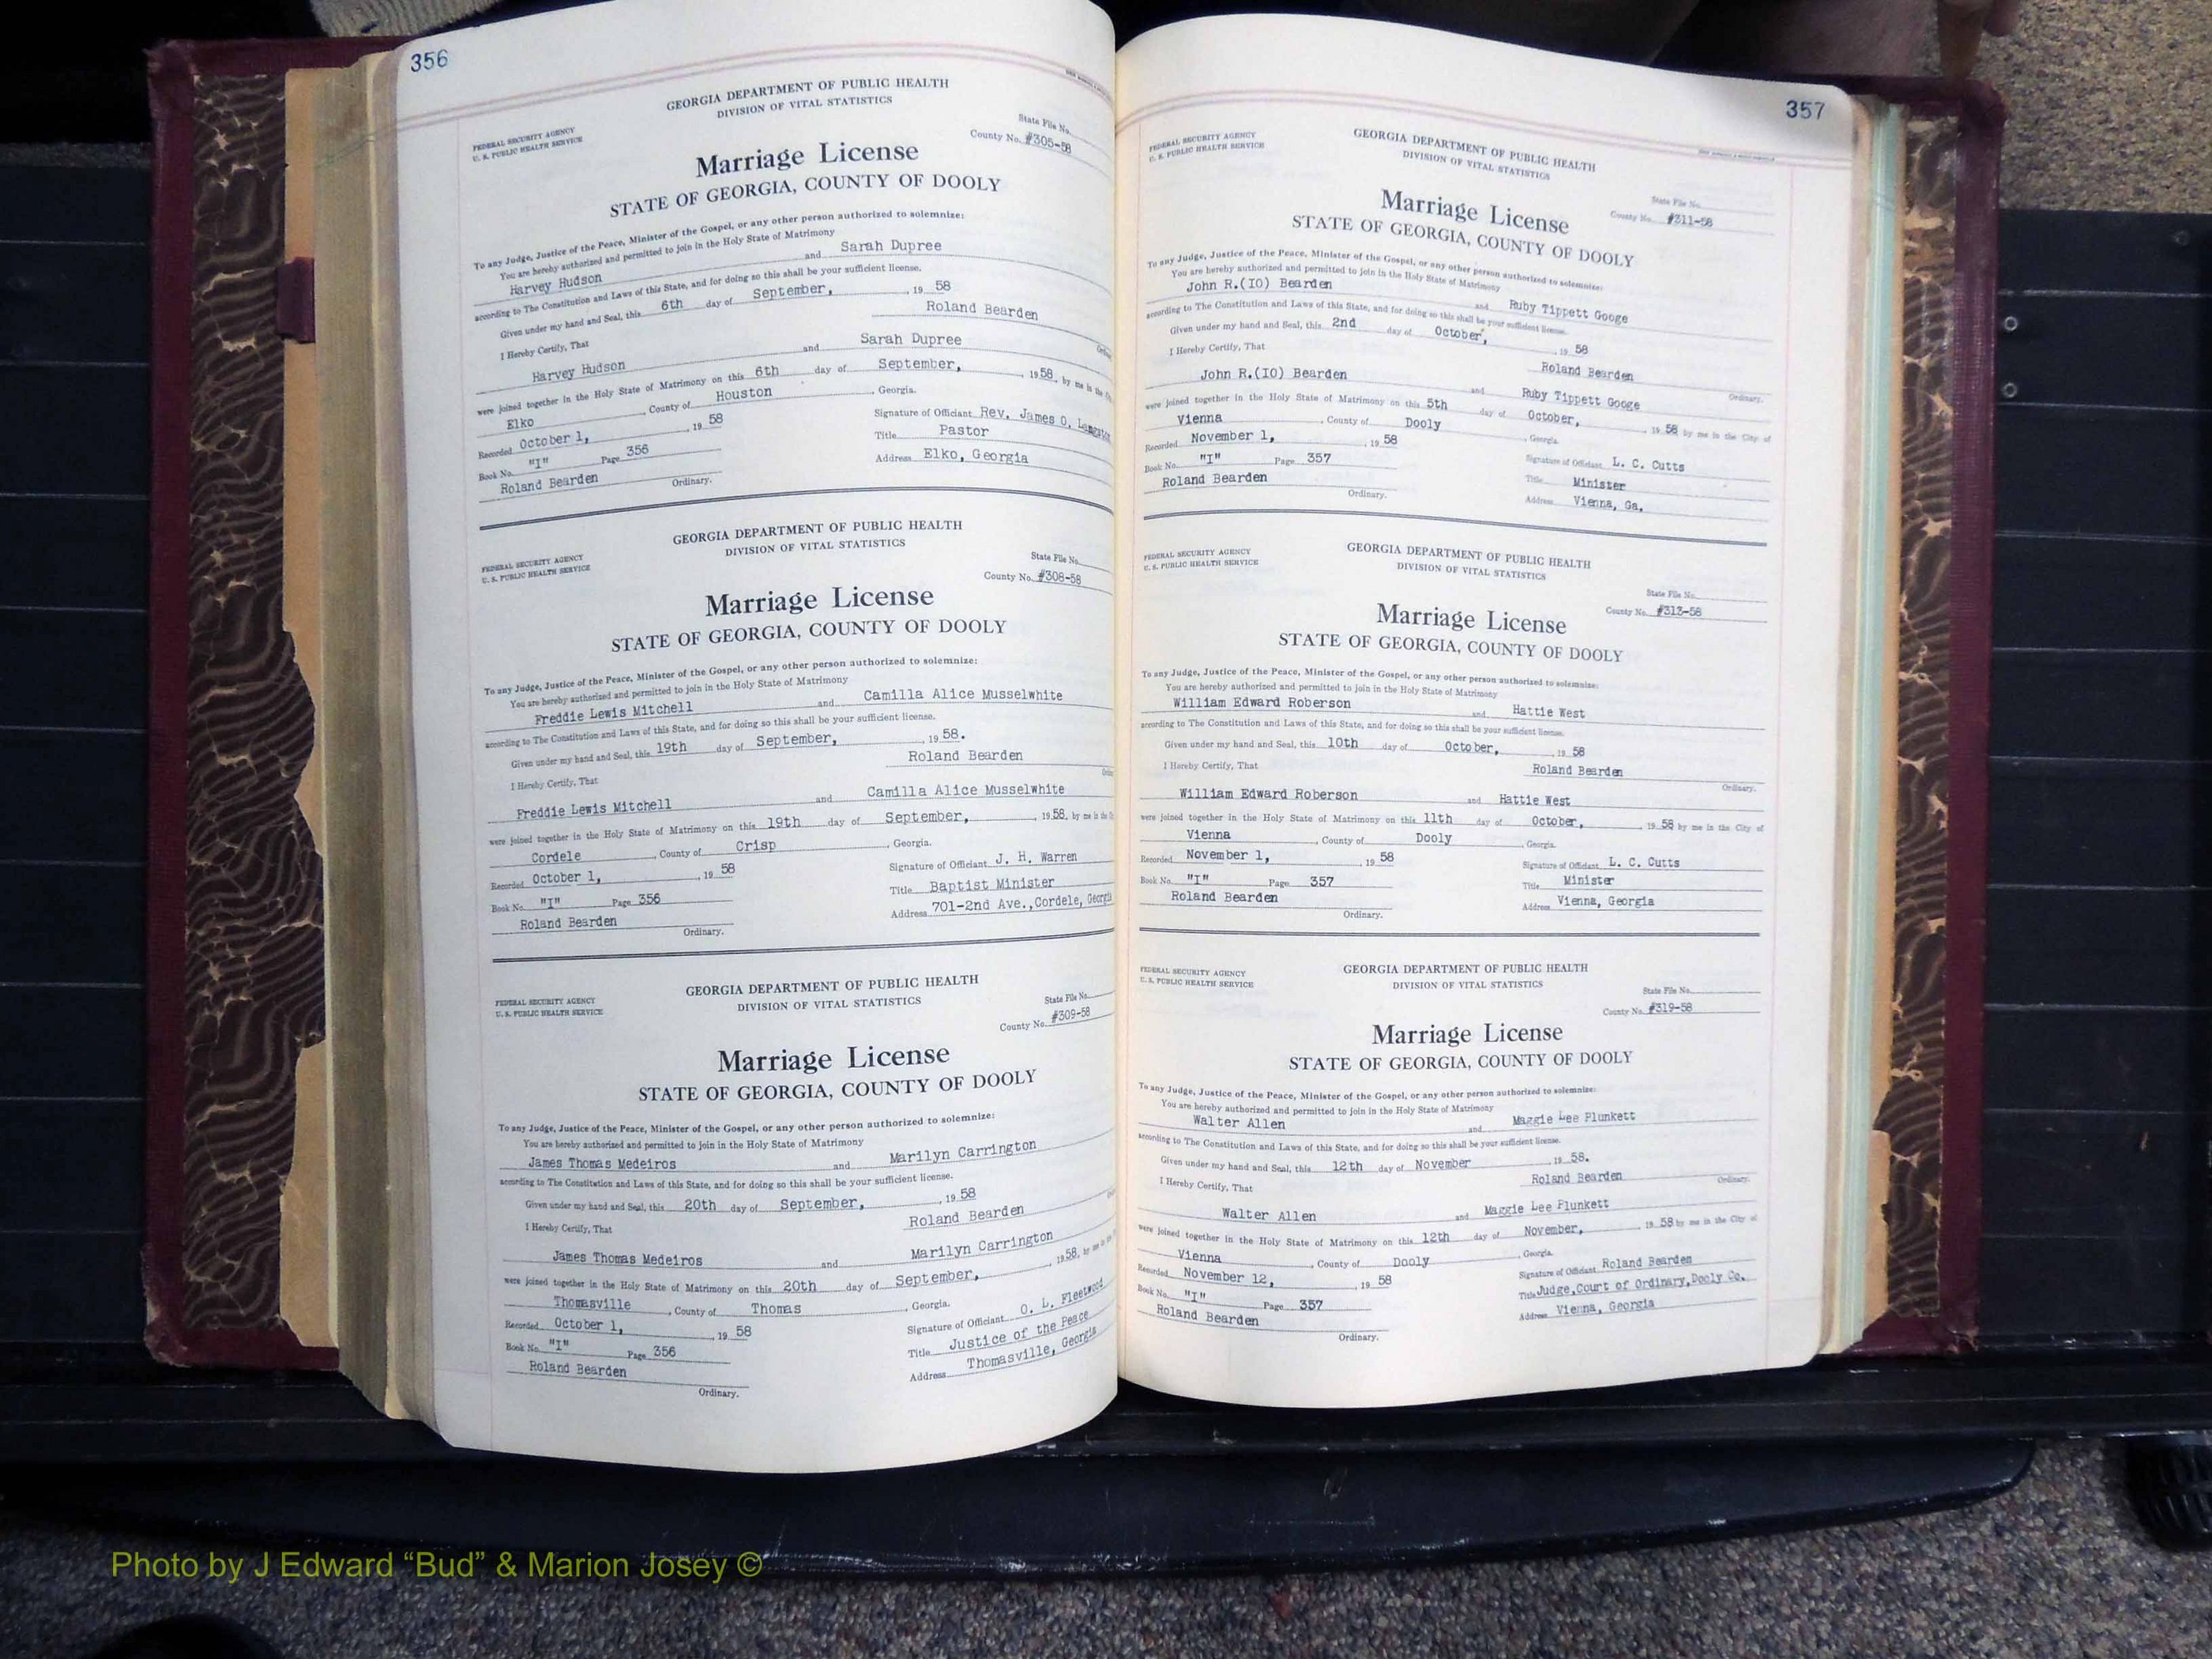 356
GEORGIA DEPARTMENT OF PUBLIC HEALTH
DIVISION OF VITAL STATISTICS
FEDERAL SECURITY AGENCY
U. S. PUBLIC HEALTH SERVICE
State File No.
County No. #305-58
Marriage License
STATE OF GEORGIA, COUNTY OF DOOLY
To any Judge, Justice of the Peace, Minister of the Gospel, or any other person authorized to solemnize:
You are hereby authorized and permitted to join in the Holy State of Matrimony
Harvey Hudson and Sarah Dupree
according to The Constitution and Laws of this State, and for doing so this shall be your sufficient license.
Given under my hand and Seal, this 6th day of September, 19 58
Roland Bearden
I Hereby Certify, That
Harvey Hudson and Sarah Dupree
were joined together in the Holy State of Matrimony on this 6th day of September, 19 58, by me in the
Elko, County of Houston, Georgia.
Recorded October 1, 19 58
Signature of Officiant Rev. James O. Langston
Book No. "I" Page 356
Title Pastor
Roland Bearden
Address Elko, Georgia
Ordinary.
GEORGIA DEPARTMENT OF PUBLIC HEALTH
DIVISION OF VITAL STATISTICS
FEDERAL SECURITY AGENCY
U. S. PUBLIC HEALTH SERVICE
State File No.
County No. #308-58
Marriage License
STATE OF GEORGIA, COUNTY OF DOOLY
To any Judge, Justice of the Peace, Minister of the Gospel, or any other person authorized to solemnize:
You are hereby authorized and permitted to join in the Holy State of Matrimony
Freddie Lewis Mitchell and Camilla Alice Musselwhite
according to The Constitution and Laws of this State, and for doing so this shall be your sufficient license.
Given under my hand and Seal, this 19th day of September, 19 58.
Roland Bearden
I Hereby Certify, That
Freddie Lewis Mitchell and Camilla Alice Musselwhite
were joined together in the Holy State of Matrimony on this 19th day of September, 19 58, by me in the
Cordele, County of Crisp, Georgia.
Recorded October 1, 19 58
Signature of Officiant J. H. Warren
Book No. "I" Page 356
Title Baptist Minister
Roland Bearden
Address 701-2nd Ave., Cordele, Georgia
Ordinary.
GEORGIA DEPARTMENT OF PUBLIC HEALTH
DIVISION OF VITAL STATISTICS
FEDERAL SECURITY AGENCY
U. S. PUBLIC HEALTH SERVICE
State File No.
County No. #309-58
Marriage License
STATE OF GEORGIA, COUNTY OF DOOLY
To any Judge, Justice of the Peace, Minister of the Gospel, or any other person authorized to solemnize:
You are hereby authorized and permitted to join in the Holy State of Matrimony
James Thomas Medeiros and Marilyn Carrington
according to The Constitution and Laws of this State, and for doing so this shall be your sufficient license.
Given under my hand and Seal, this 20th day of September, 19 58
Roland Bearden
I Hereby Certify, That
James Thomas Medeiros and Marilyn Carrington
were joined together in the Holy State of Matrimony on this 20th day of September, 19 58, by me in the
Thomasville, County of Thomas, Georgia.
Recorded October 1, 19 58
Signature of Officiant O. L. Fleetwood
Book No. "I" Page 356
Title Justice of the Peace
Roland Bearden
Address Thomasville, Georgia
Ordinary.
357
GEORGIA DEPARTMENT OF PUBLIC HEALTH
DIVISION OF VITAL STATISTICS
FEDERAL SECURITY AGENCY
U. S. PUBLIC HEALTH SERVICE
State File No.
County No. #311-58
Marriage License
STATE OF GEORGIA, COUNTY OF DOOLY
To any Judge, Justice of the Peace, Minister of the Gospel, or any other person authorized to solemnize:
You are hereby authorized and permitted to join in the Holy State of Matrimony
John R.(IO) Bearden and Ruby Tippett Googe
according to The Constitution and Laws of this State, and for doing so this shall be your sufficient license.
Given under my hand and Seal, this 2nd day of October, 19 58
I Hereby Certify, That
Roland Bearden
Ordinary.
John R.(IO) Bearden and Ruby Tippett Googe
were joined together in the Holy State of Matrimony on this 5th day of October, 19 58 by me in the City of
Vienna, County of Dooly, Georgia.
Recorded November 1, 19 58
Signature of Officiant L. C. Cutts
Book No. "I" Page 357
Title Minister
Roland Bearden
Address Vienna, Ga.
Ordinary.
GEORGIA DEPARTMENT OF PUBLIC HEALTH
DIVISION OF VITAL STATISTICS
FEDERAL SECURITY AGENCY
U. S. PUBLIC HEALTH SERVICE
State File No.
County No. #313-58
Marriage License
STATE OF GEORGIA, COUNTY OF DOOLY
To any Judge, Justice of the Peace, Minister of the Gospel, or any other person authorized to solemnize:
You are hereby authorized and permitted to join in the Holy State of Matrimony
William Edward Roberson and Hattie West
according to The Constitution and Laws of this State, and for doing so this shall be your sufficient license.
Given under my hand and Seal, this 10th day of October, 19 58
I Hereby Certify, That
Roland Bearden
Ordinary.
William Edward Roberson and Hattie West
were joined together in the Holy State of Matrimony on this 11th day of October, 19 58 by me in the City of
Vienna, County of Dooly, Georgia.
Recorded November 1, 19 58
Signature of Officiant L. C. Cutts
Book No. "I" Page 357
Title Minister
Roland Bearden
Address Vienna, Georgia
Ordinary.
GEORGIA DEPARTMENT OF PUBLIC HEALTH
DIVISION OF VITAL STATISTICS
FEDERAL SECURITY AGENCY
U. S. PUBLIC HEALTH SERVICE
State File No.
County No. #319-58
Marriage License
STATE OF GEORGIA, COUNTY OF DOOLY
To any Judge, Justice of the Peace, Minister of the Gospel, or any other person authorized to solemnize:
You are hereby authorized and permitted to join in the Holy State of Matrimony
Walter Allen and Maggie Lee Plunkett
according to The Constitution and Laws of this State, and for doing so this shall be your sufficient license.
Given under my hand and Seal, this 12th day of November 19 58.
I Hereby Certify, That
Roland Bearden
Ordinary.
Walter Allen and Maggie Lee Plunkett
were joined together in the Holy State of Matrimony on this 12th day of November, 19 58 by me in the City of
Vienna, County of Dooly, Georgia.
Recorded November 12, 19 58
Signature of Officiant Roland Bearden
Book No. "I" Page 357
Title Judge, Court of Ordinary, Dooly Co.
Roland Bearden
Address Vienna, Georgia
Ordinary.
Photo by J Edward “Bud” & Marion Josey ©